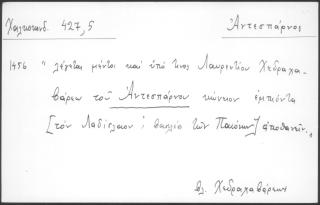 Χαλκοκονδ. 427,5 Ἀντεσπάρνος
1456 "λέγεται μέντοι καὶ ὑπό τινος Λαυρεντίου Χεδραχα-
βάρεω τοῦ Ἀντεσπάρνου κώνειον ἐμπιόντα
[τὸν Λαδίσλαον, βασιλέα τῶν Παιόνων] ἀποθανεῖν..
βλ. Χεδραχαβάρεων